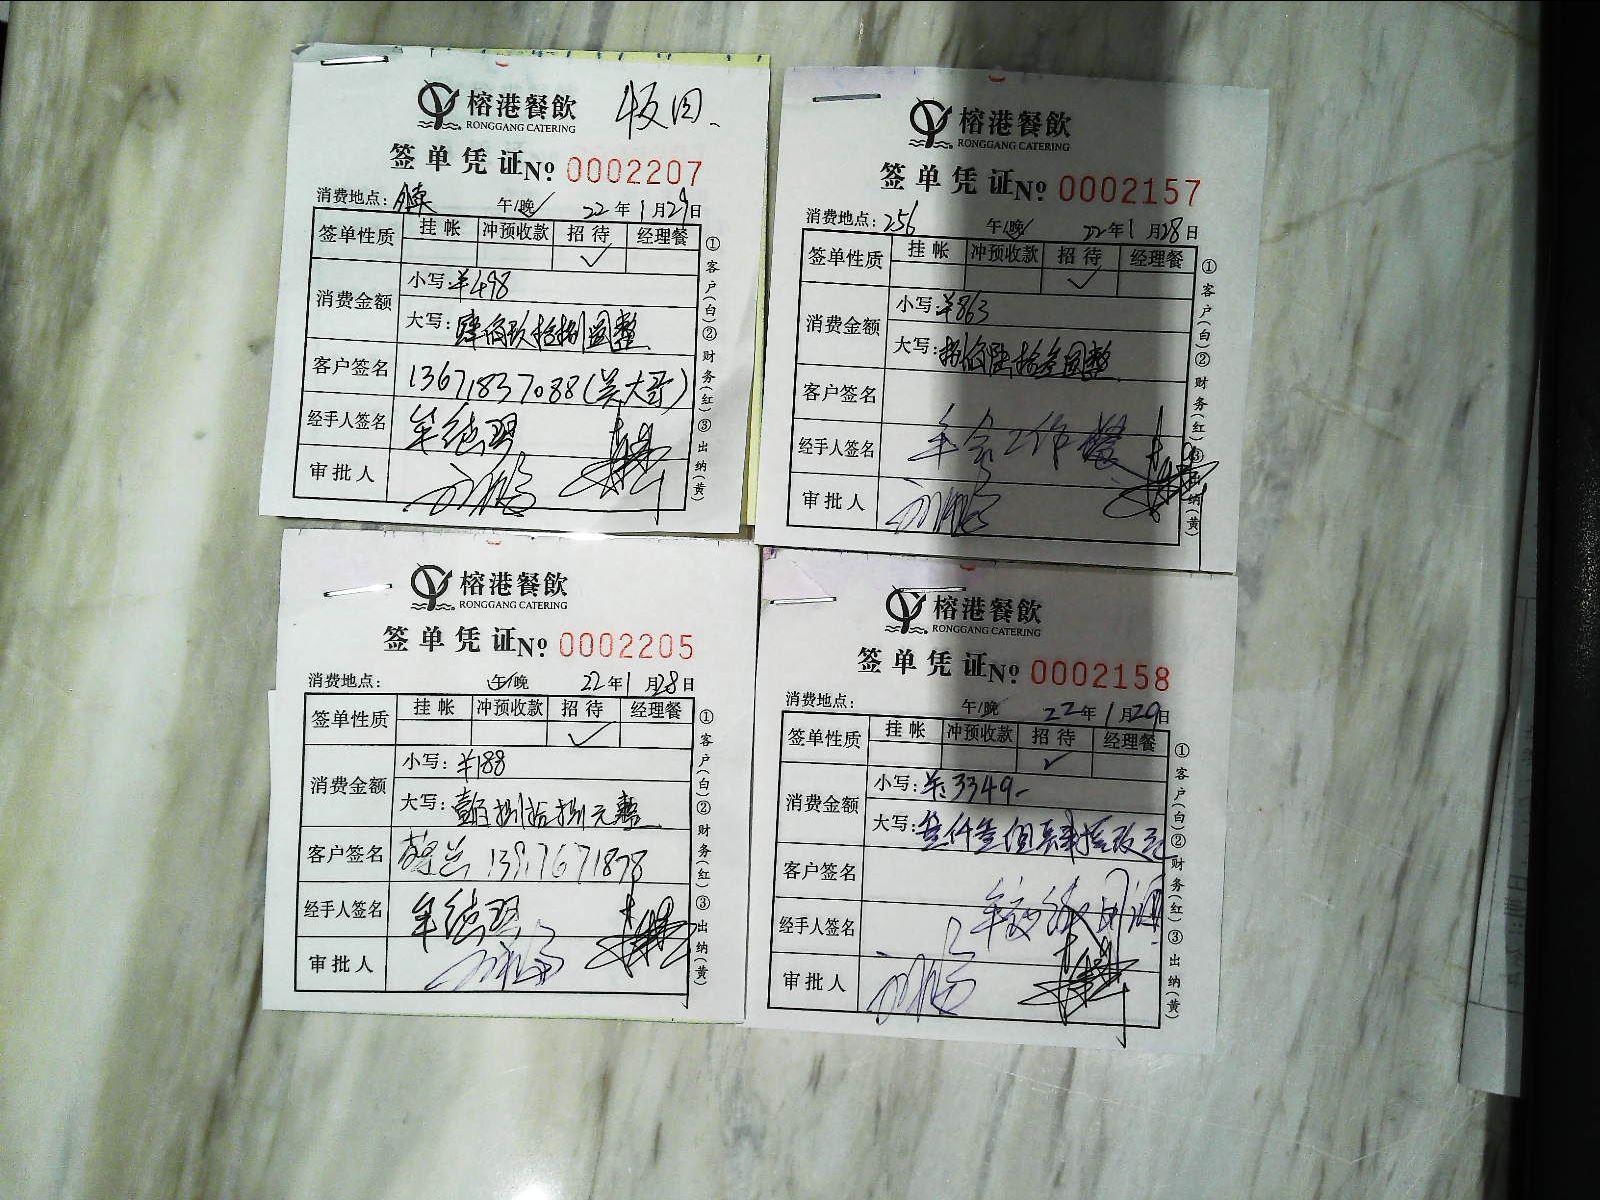 榕港餐飲
RONGGANG CATERING
签单凭证№ 0002207
消费地点: 午/晚 22年1月29日
签单性质 挂帐 冲预收款 招待 经理餐
✓
消费金额 小写:¥498
大写:肆佰玖拾捌圆整
客户签名 13671837088(吴大哥)
经手人签名
审批人
①客户(白)②财务(红)③出纳(黄)
榕港餐飲
RONGGANG CATERING
签单凭证№ 0002157
消费地点:256 午/晚 22年1月28日
签单性质 挂帐 冲预收款 招待 经理餐
✓
消费金额 小写:¥863
大写:捌佰陆拾叁圆整
客户签名
经手人签名 年会工作餐
审批人
①客户(白)②财务(红)③出纳(黄)
榕港餐飲
RONGGANG CATERING
签单凭证№ 0002205
消费地点: 午/晚 22年1月28日
签单性质 挂帐 冲预收款 招待 经理餐
✓
消费金额 小写:¥188
大写:壹佰捌拾捌元整
客户签名 13917671878
经手人签名
审批人
①客户(白)②财务(红)③出纳(黄)
榕港餐飲
RONGGANG CATERING
签单凭证№ 0002158
消费地点: 午/晚 22年1月29日
签单性质 挂帐 冲预收款 招待 经理餐
✓
消费金额 小写:¥:3349-
大写:叁仟叁佰肆拾玖元
客户签名
经手人签名
审批人
①客户(白)②财务(红)③出纳(黄)